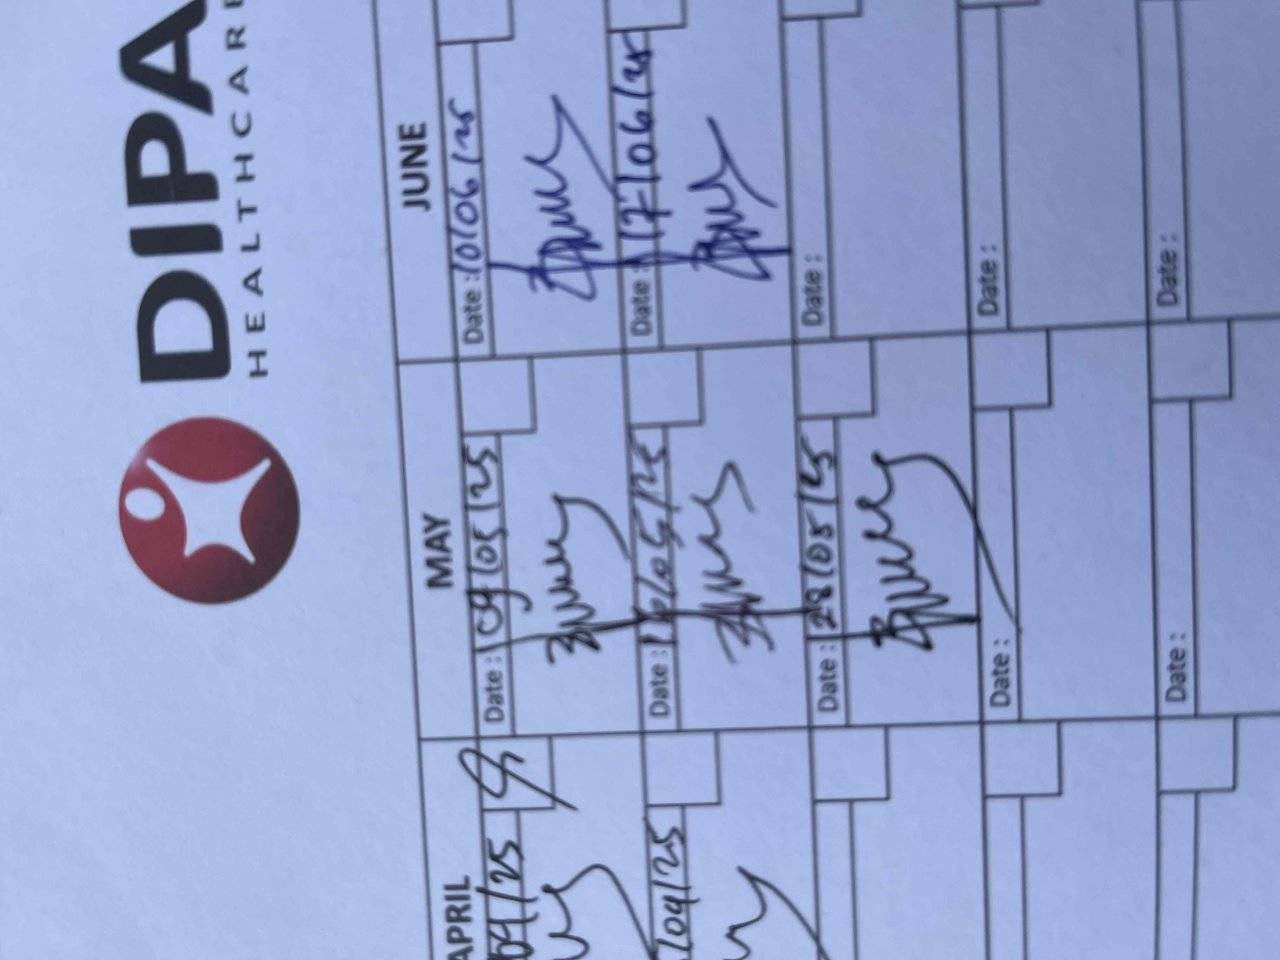 DIPA
HEALTHCARE
APRIL
04/25
/04/25
MAY
Date : 09/05/25
Date : 16/05/25
Date : 28/05/25
Date :
Date :
JUNE
Date : 10/06/25
Date : 17/06/25
Date :
Date :
Date :